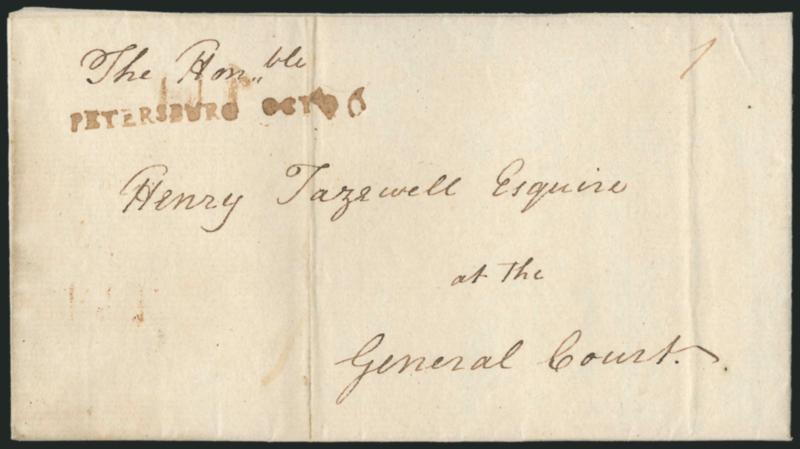 The Hon,,ble
PETERSBURG OCT 6
Henry Tazewell Esquire
at the
General Court.